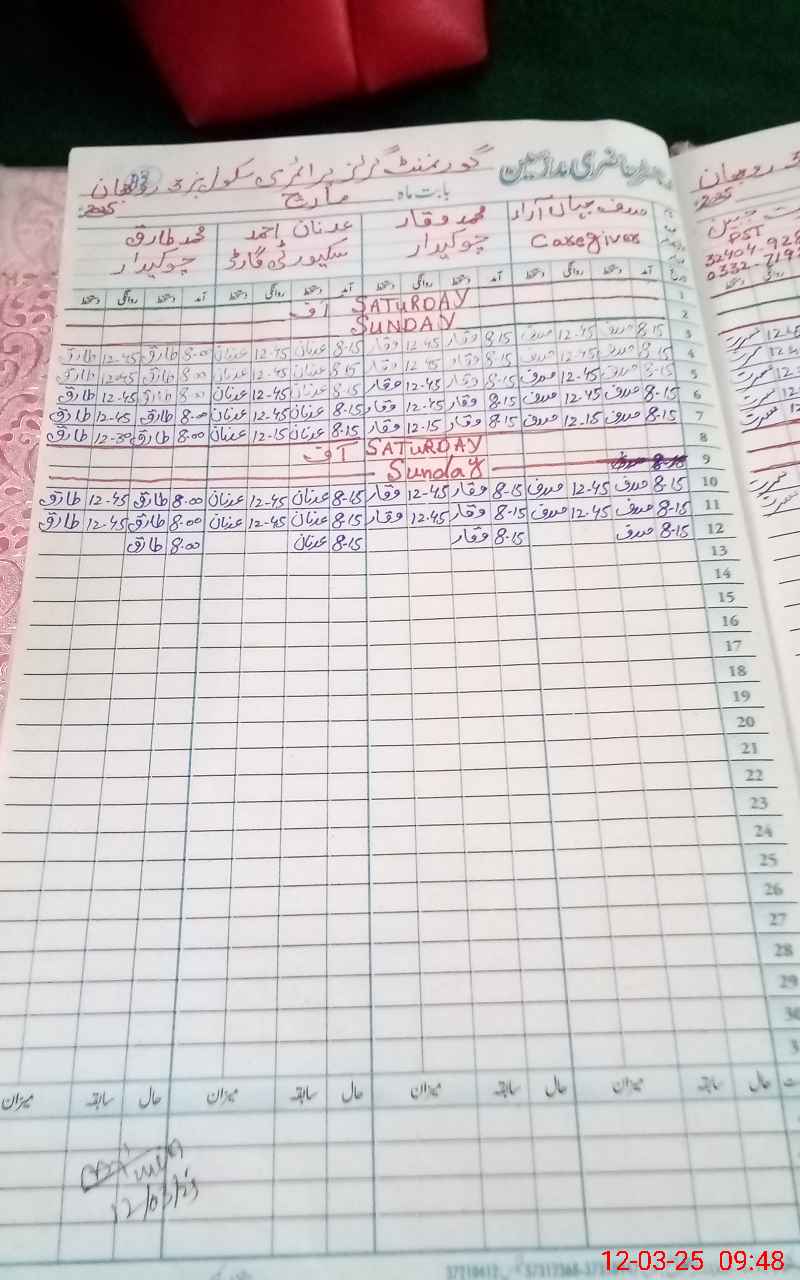 گورنمنٹ گرلز پرائمری سکول نمبر 3 روجھان
بابت ماہ مارچ 2025
صدف جہاں آراء محمد وقار عدنان احمد محمد طارق
Caregiver چوکیدار سکیورٹی گارڈ چوکیدار
آمد دستخط روانگی دستخط آمد دستخط روانگی دستخط آمد دستخط روانگی دستخط آمد دستخط روانگی دستخط
1 SATURDAY آف
2 SUNDAY
3 8-15 صدف 12-45 صدف 8-15 وقار 12-45 وقار 8-15 عدنان 12-45 عدنان 8-00 طارق 12-45 طارق
4 8-15 صدف 12-45 صدف 8-15 وقار 12-45 وقار 8-15 عدنان 12-45 عدنان 8-00 طارق 12-45 طارق
5 8-15 صدف 12-45 صدف 8-15 وقار 12-45 وقار 8-15 عدنان 12-45 عدنان 8-00 طارق 12-45 طارق
6 8-15 صدف 12-45 صدف 8-15 وقار 12-45 وقار 8-15 عدنان 12-45 عدنان 8-00 طارق 12-45 طارق
7 8-15 صدف 12-15 صدف 8-15 وقار 12-15 وقار 8-15 عدنان 12-15 عدنان 8-00 طارق 12-30 طارق
8 SATURDAY آف
9 Sunday
10 8-15 صدف 12-45 صدف 8-15 وقار 12-45 وقار 8-15 عدنان 12-45 عدنان 8-00 طارق 12-45 طارق
11 8-15 صدف 12-45 صدف 8-15 وقار 12-45 وقار 8-15 عدنان 12-45 عدنان 8-00 طارق 12-45 طارق
12 8-15 صدف 8-15 وقار 8-15 عدنان 8-00 طارق
13
14
15
16
17
18
19
20
21
22
23
24
25
26
27
28
29
30
3
حال سابقہ میزان حال سابقہ میزان حال سابقہ میزان حال سابقہ میزان
12/03/25
روجھان
PST
12-03-25 09:48